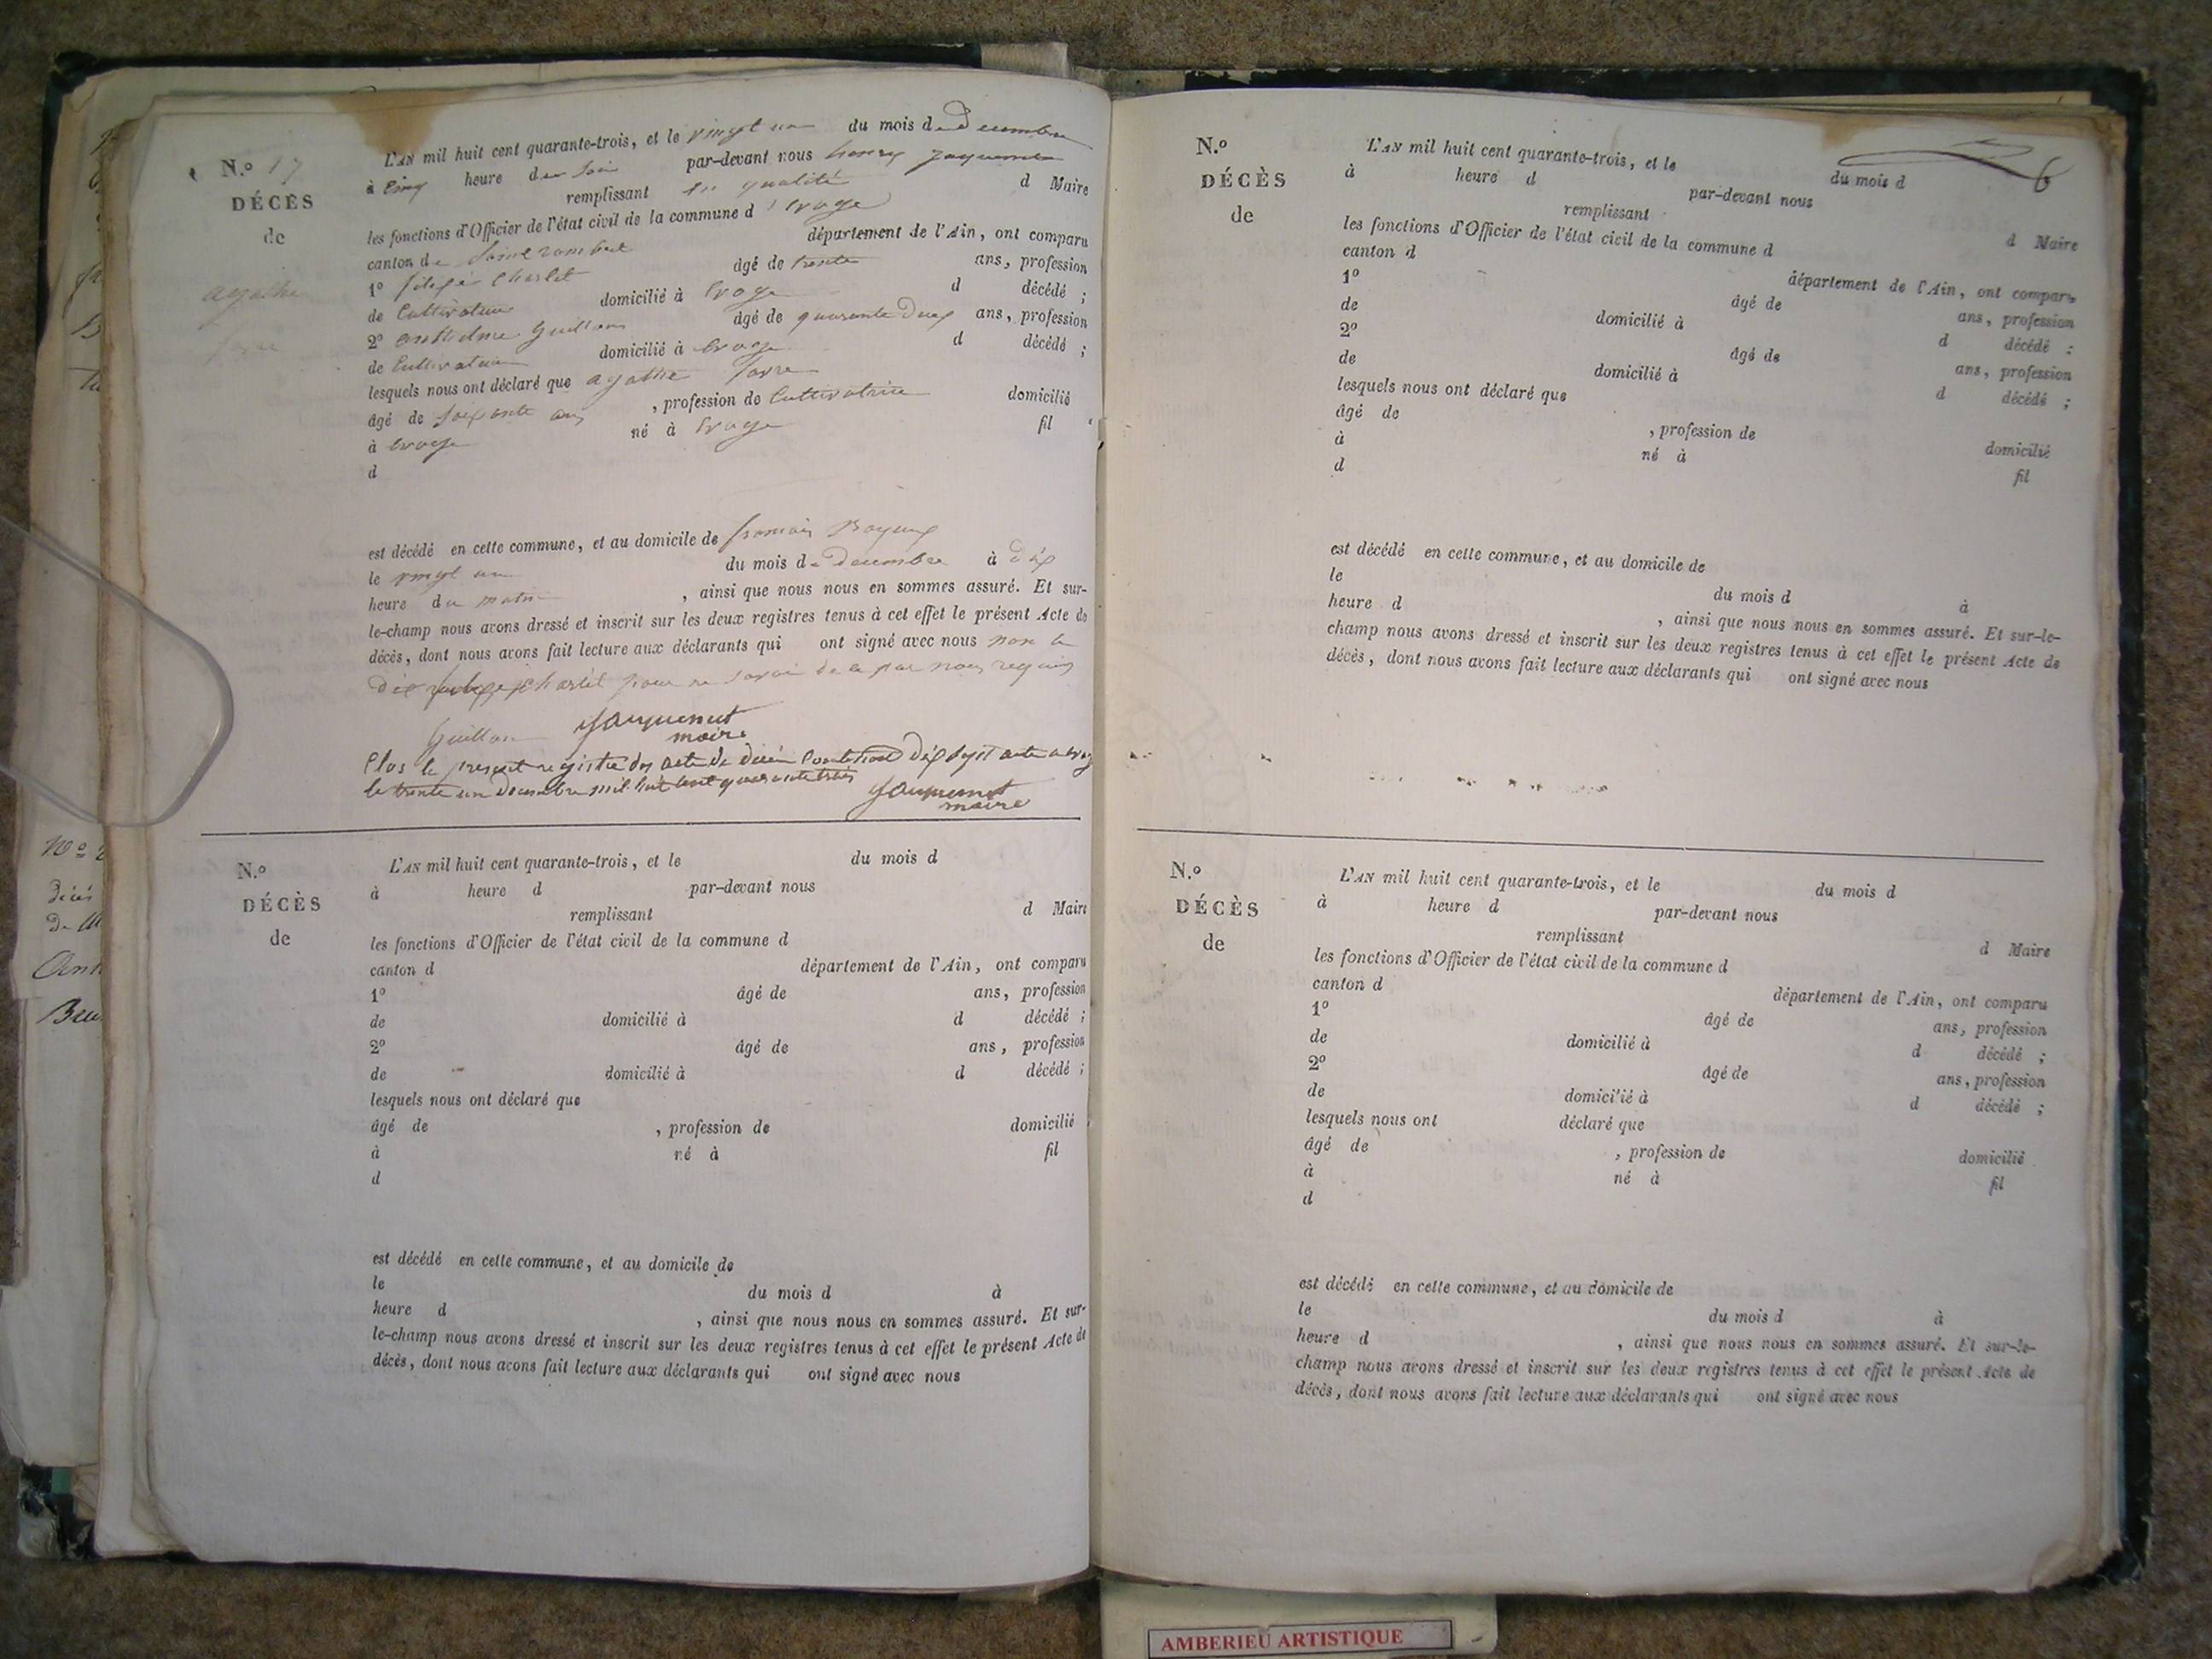 N.o 17
DÉCÈS
de
agathe
L'AN mil huit cent quarante-trois, et le vingt un du mois de Decembre
à cinq heure du soir par-devant nous henry jaquemet
remplissant en qualité d Maire
les fonctions d'Officier de l'état civil de la commune d
canton de département de l'Ain, ont comparu
1o Charlet âgé de trente ans, profession
de Cultivateur domicilié à d décédé ;
2o anthelme Guillon âgé de quarante Deux ans, profession
de Cultivateur domicilié à d décédé ;
lesquels nous ont déclaré que agathe
âgé de soixante ans , profession de Cultivatrice domicilié
à né à fil
d
est décédé en cette commune, et au domicile de
le vingt un du mois de decembre à dix
heure du matin , ainsi que nous nous en sommes assuré. Et sur-
le-champ nous avons dressé et inscrit sur les deux registres tenus à cet effet le présent Acte de
décès, dont nous avons fait lecture aux déclarants qui ont signé avec nous non le
dit charlet pour ne savoir de ce par nous requis
Guillon Jaquemet
maire
Clos le present registre des acte de décès contenant dix sept acte
le trente un Decembre mil huit cent quarante trois
Jaquemet
maire
N.o
DÉCÈS
de
L'AN mil huit cent quarante-trois, et le du mois d
à heure d par-devant nous
remplissant d Maire
les fonctions d'Officier de l'état civil de la commune d
canton d département de l'Ain, ont comparu
1o âgé de ans, profession
de domicilié à d décédé ;
2o âgé de ans, profession
de domicilié à d décédé ;
lesquels nous ont déclaré que
âgé de , profession de domicilié
à né à fil
d
est décédé en cette commune, et au domicile de
le du mois d à
heure d , ainsi que nous nous en sommes assuré. Et sur-
le-champ nous avons dressé et inscrit sur les deux registres tenus à cet effet le présent Acte de
décès, dont nous avons fait lecture aux déclarants qui ont signé avec nous
6
N.o
DÉCÈS
de
L'AN mil huit cent quarante-trois, et le du mois d
à heure d par-devant nous
remplissant d Maire
les fonctions d'Officier de l'état civil de la commune d
canton d département de l'Ain, ont comparu
1o âgé de ans, profession
de domicilié à d décédé :
2o âgé de ans, profession
de domicilié à d décédé ;
lesquels nous ont déclaré que
âgé de , profession de domicilié
à né à fil
d
est décédé en cette commune, et au domicile de
le du mois d à
heure d , ainsi que nous nous en sommes assuré. Et sur-le-
champ nous avons dressé et inscrit sur les deux registres tenus à cet effet le présent Acte de
décès, dont nous avons fait lecture aux déclarants qui ont signé avec nous
N.o
DÉCÈS
de
L'AN mil huit cent quarante-trois, et le du mois d
à heure d par-devant nous
remplissant d Maire
les fonctions d'Officier de l'état civil de la commune d
canton d département de l'Ain, ont comparu
1o âgé de ans, profession
de domicilié à d décédé ;
2o âgé de ans, profession
de domicilié à d décédé ;
lesquels nous ont déclaré que
âgé de , profession de domicilié
à né à fil
d
est décédé en cette commune, et au domicile de
le du mois d à
heure d , ainsi que nous nous en sommes assuré. Et sur-le-
champ nous avons dressé et inscrit sur les deux registres tenus à cet effet le présent Acte de
décès, dont nous avons fait lecture aux déclarants qui ont signé avec nous
AMBERIEU ARTISTIQUE